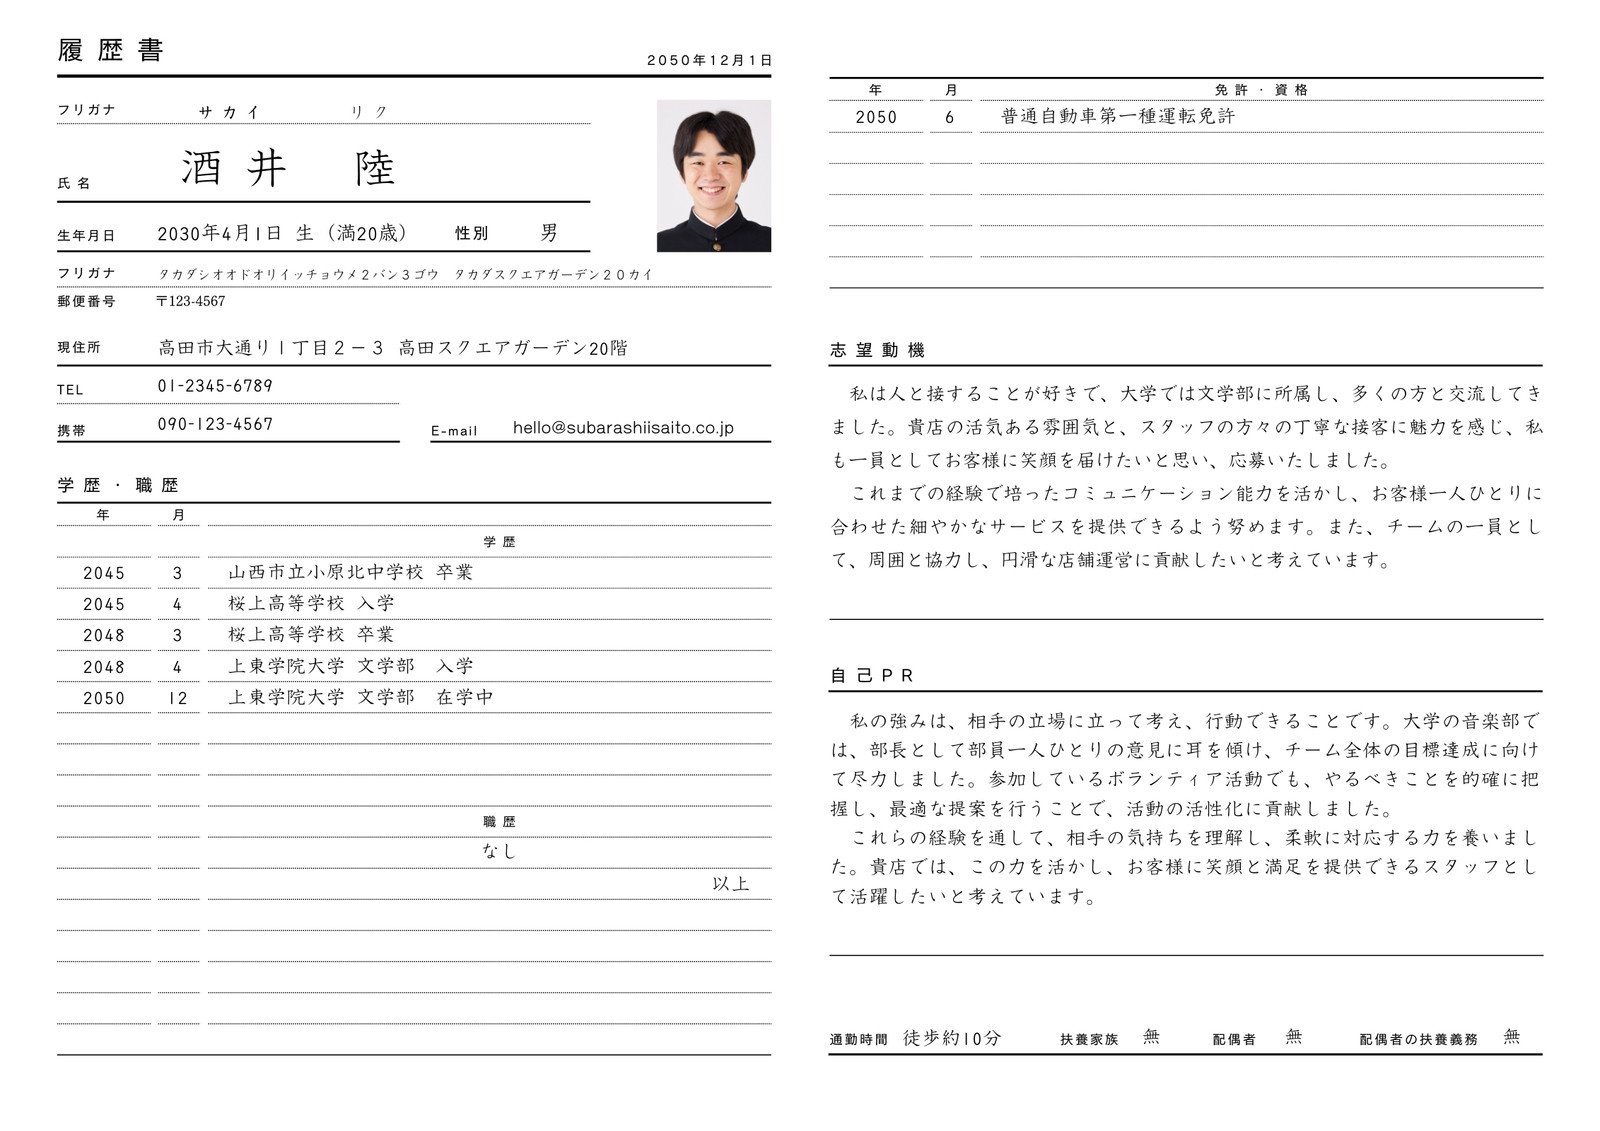 履歴書
2050年12月1日
フリガナ サカイ リク
氏名 酒井 陸
生年月日 2030年4月1日 生（満20歳） 性別 男
フリガナ タカダシオオドオリイッチョウメ2バン3ゴウ タカダスクエアガーデン20カイ
郵便番号 〒123-4567
現住所 高田市大通り1丁目2－3 高田スクエアガーデン20階
TEL 01-2345-6789
携帯 090-123-4567 E-mail hello@subarashiisaito.co.jp
学歴・職歴
年 月
学歴
2045 3 山西市立小原北中学校 卒業
2045 4 桜上高等学校 入学
2048 3 桜上高等学校 卒業
2048 4 上東学院大学 文学部 入学
2050 12 上東学院大学 文学部 在学中
職歴
なし
以上
年 月 免許・資格
2050 6 普通自動車第一種運転免許
志望動機
私は人と接することが好きで、大学では文学部に所属し、多くの方と交流してき
ました。貴店の活気ある雰囲気と、スタッフの方々の丁寧な接客に魅力を感じ、私
も一員としてお客様に笑顔を届けたいと思い、応募いたしました。
これまでの経験で培ったコミュニケーション能力を活かし、お客様一人ひとりに
合わせた細やかなサービスを提供できるよう努めます。また、チームの一員とし
て、周囲と協力し、円滑な店舗運営に貢献したいと考えています。
自己PR
私の強みは、相手の立場に立って考え、行動できることです。大学の音楽部で
は、部長として部員一人ひとりの意見に耳を傾け、チーム全体の目標達成に向け
て尽力しました。参加しているボランティア活動でも、やるべきことを的確に把
握し、最適な提案を行うことで、活動の活性化に貢献しました。
これらの経験を通して、相手の気持ちを理解し、柔軟に対応する力を養いまし
た。貴店では、この力を活かし、お客様に笑顔と満足を提供できるスタッフとし
て活躍したいと考えています。
通勤時間 徒歩約10分 扶養家族 無 配偶者 無 配偶者の扶養義務 無